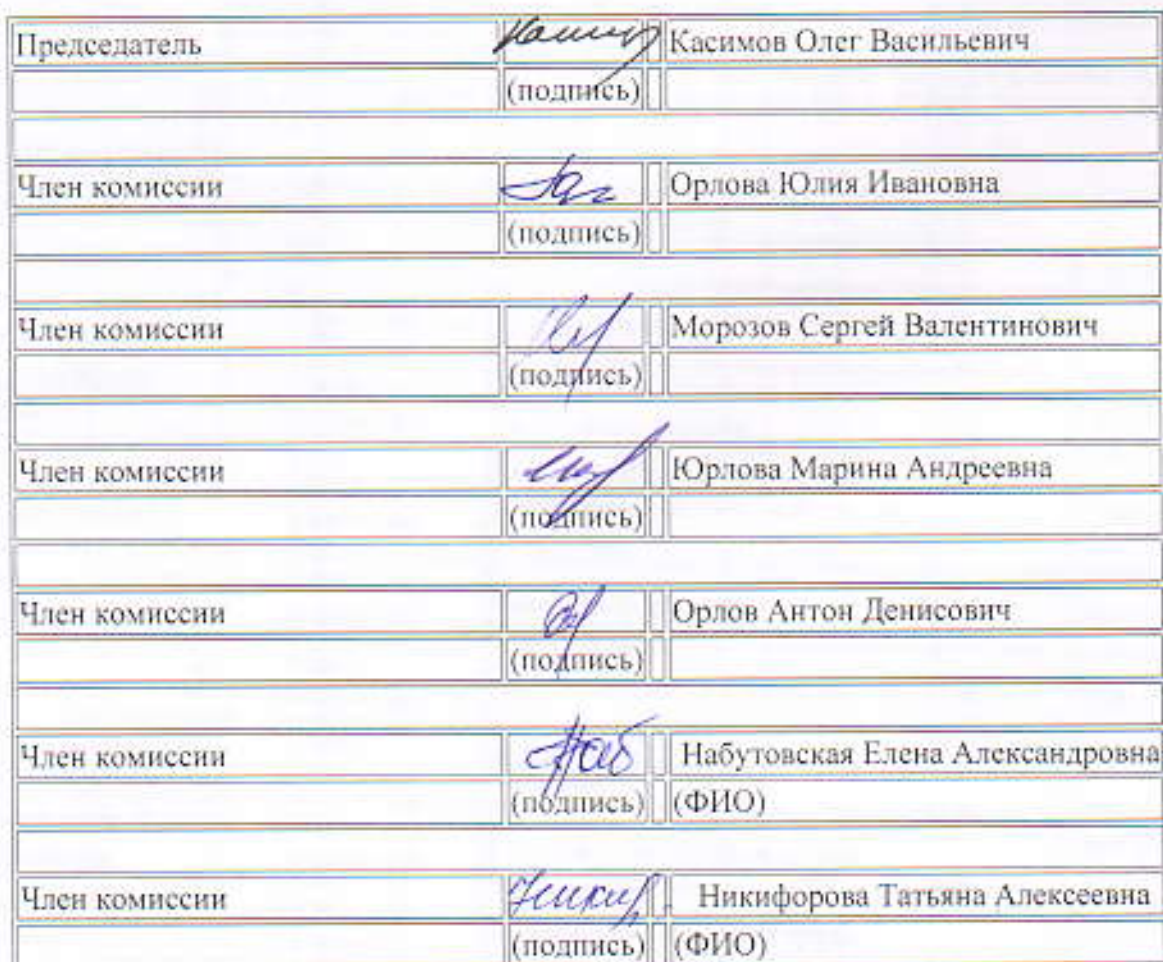 Председатель Касимов Олег Васильевич
(подпись)
Член комиссии Орлова Юлия Ивановна
(подпись)
Член комиссии Морозов Сергей Валентинович
(подпись)
Член комиссии Юрлова Марина Андреевна
(подпись)
Член комиссии Орлов Антон Денисович
(подпись)
Член комиссии Набутовская Елена Александровна
(подпись) (ФИО)
Член комиссии Никифорова Татьяна Алексеевна
(подпись) (ФИО)